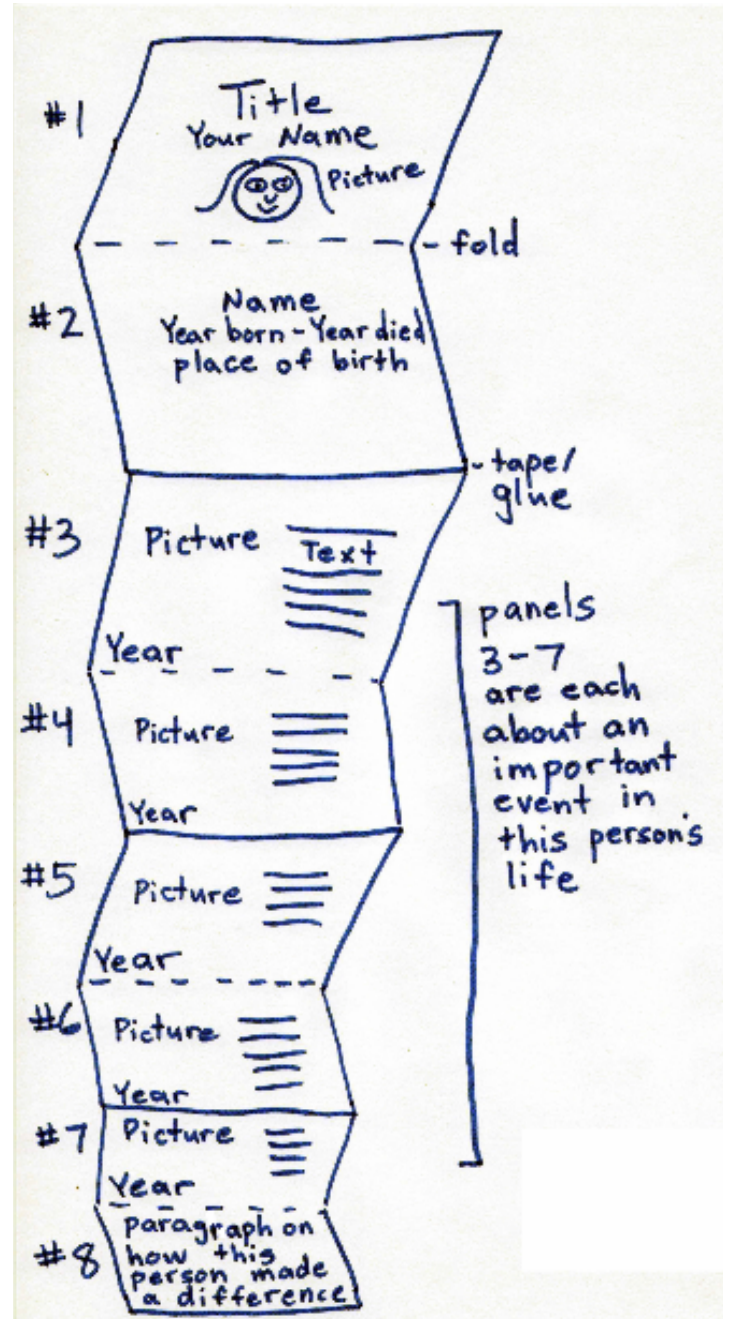 #1
Title
Your Name
Picture
- fold
#2
Name
Year born - Year died
place of birth
- tape/
glue
#3
Picture
Text
Year
panels
3-7
are each
about an
important
event in
this person's
life
#4
Picture
Year
#5
Picture
Year
#6
Picture
Year
#7
Picture
Year
#8
paragraph on
how this
person made
a difference